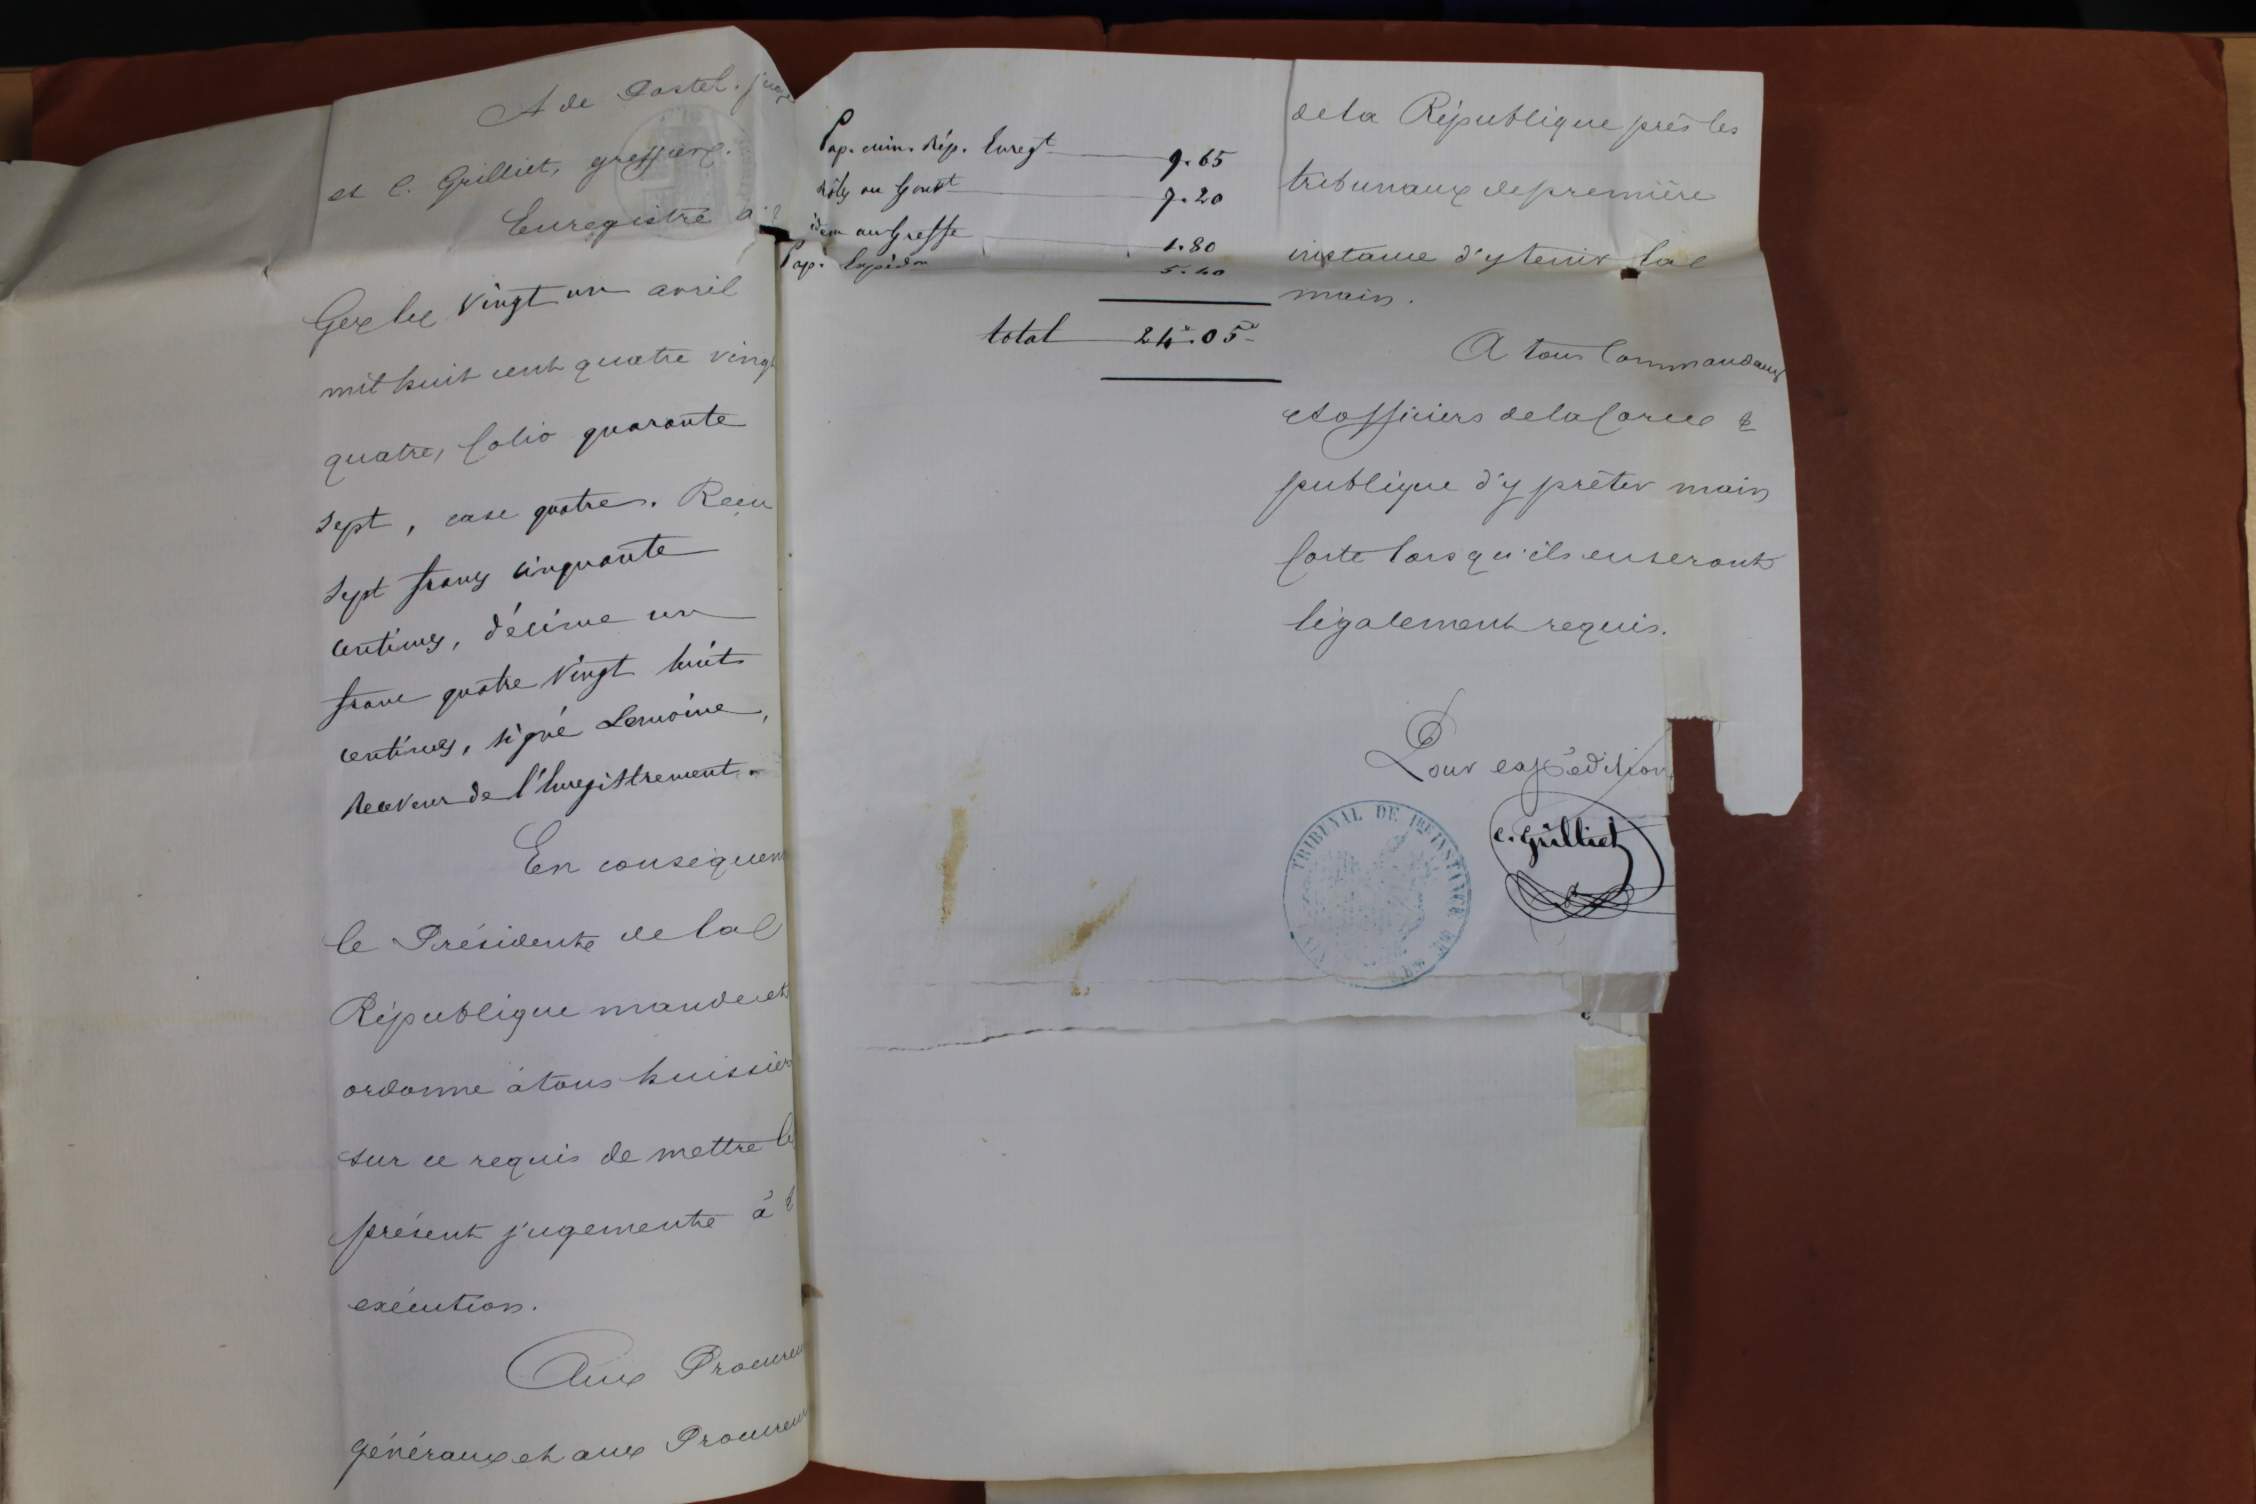 A de Pastel. juge
et C. Grilliet, greffier.
Enregistré à
Gex le vingt un avril
mil huit cent quatre vingt
quatre, folio quarante
sept, case quatre. Reçu
sept francs cinquante
centimes, décime un
franc quatre vingt huit
centimes, signé Lemoine,
Receveur de l'Enregistrement.
En conséquen
le Président de la
République mande et
ordonne à tous huissiers
sur ce requis de mettre le
présent jugement à
exécution.
Aux Procureu
généraux et aux Procureu
Pap. min. Rép. Enregt 9.65
rôles au Gouvt 7.20
idem au Greffe 1.80
Pap. Expédon 5.40
total 24f.05c
de la République près les
tribunaux de première
instance d'y tenir la
main.
A tous Commandants
et officiers de la force
publique d'y prêter main
forte lorsqu'ils en seront
légalement requis.
Pour expédition
C. Grilliet
TRIBUNAL DE 1RE INSTANCE DE GEX